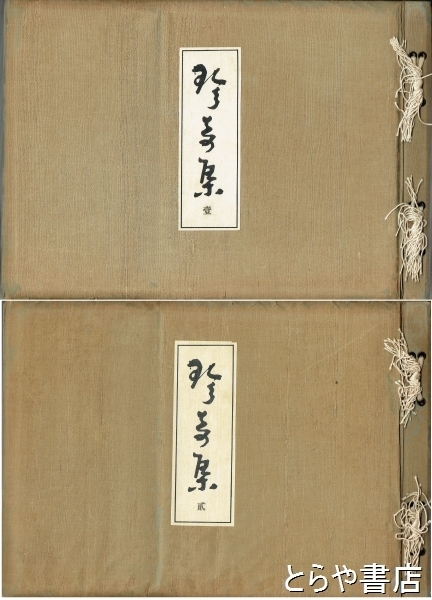 珍奇集
壹
珍奇集
貳
とらや書店